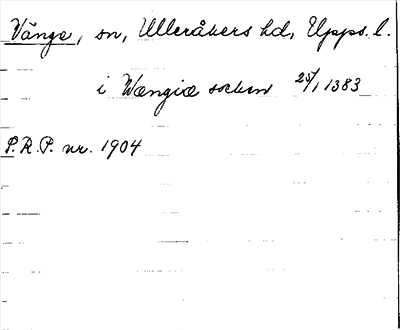 Vänge, sn, Ulleråkers hd, Upps. l.
i Wængiæ sochen 25/1 1383
P.R.P. nr. 1904